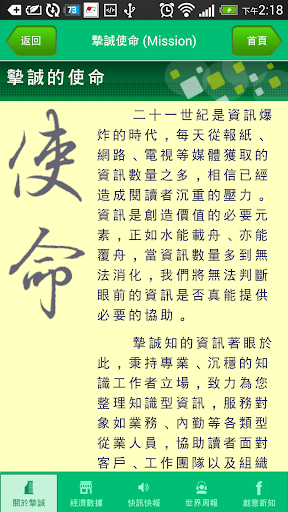 73
下午 2:18
返回
摯誠使命 (Mission)
首頁
摯誠的使命
使命
二十一世紀是資訊爆
炸的時代，每天從報紙、
網路、電視等媒體獲取的
資訊數量之多，相信已經
造成閱讀者沉重的壓力。
資訊是創造價值的必要元
素，正如水能載舟、亦能
覆舟，當資訊數量多到無
法消化，我們將無法判斷
眼前的資訊是否真能提供
必要的協助。
摯誠知的資訊著眼於
此，秉持專業、沉穩的知
識工作者立場，致力為您
整理知識型資訊，服務對
象如業務、內勤等各類型
從業人員，協助讀者面對
客戶、工作團隊以及組織
關於摯誠
經濟數據
快訊快報
世界周報
創意新知